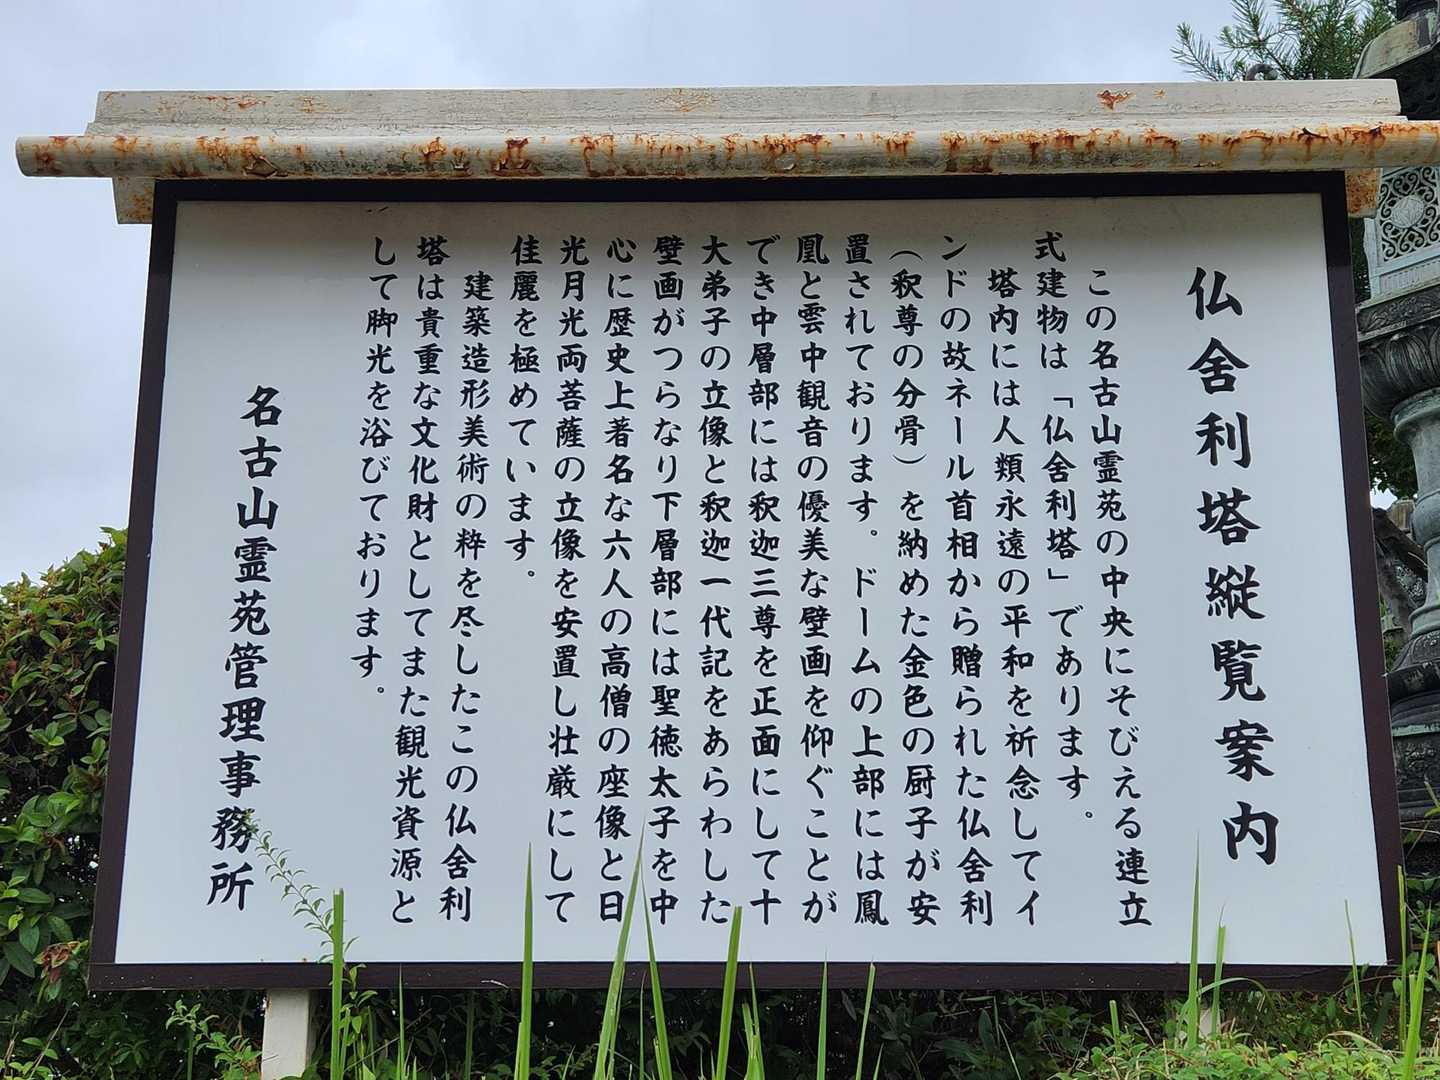 仏舎利塔縦覧案内
この名古山霊苑の中央にそびえる連立
式建物は「仏舎利塔」であります。
塔内には人類永遠の平和を祈念してイ
ンドの故ネール首相から贈られた仏舎利
（釈尊の分骨）を納めた金色の厨子が安
置されております。ドームの上部には鳳
凰と雲中観音の優美な壁画を仰ぐことが
でき中層部には釈迦三尊を正面にして十
大弟子の立像と釈迦一代記をあらわした
壁画がつらなり下層部には聖徳太子を中
心に歴史上著名な六人の高僧の座像と日
光月光両菩薩の立像を安置し壮厳にして
佳麗を極めています。
建築造形美術の粋を尽したこの仏舎利
塔は貴重な文化財としてまた観光資源と
して脚光を浴びております。
名古山霊苑管理事務所